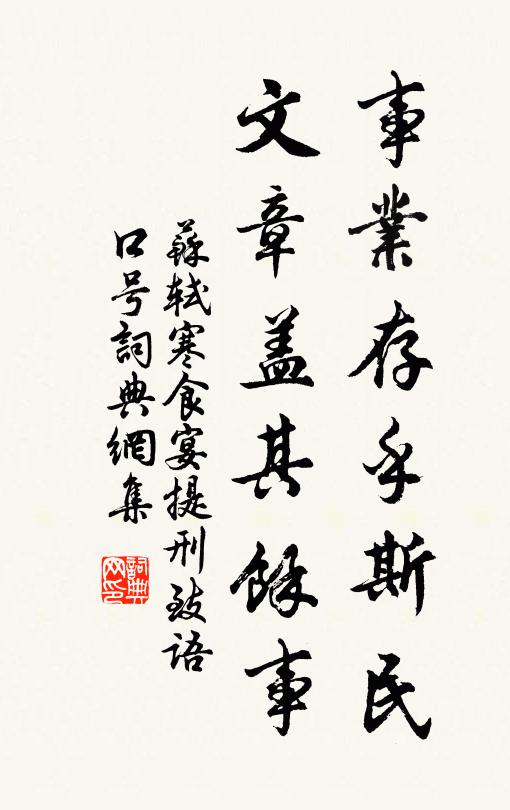 事業存乎斯民
文章蓋其餘事
蘇軾寒食宴提刑致語
口号詞典網集
詞典网印